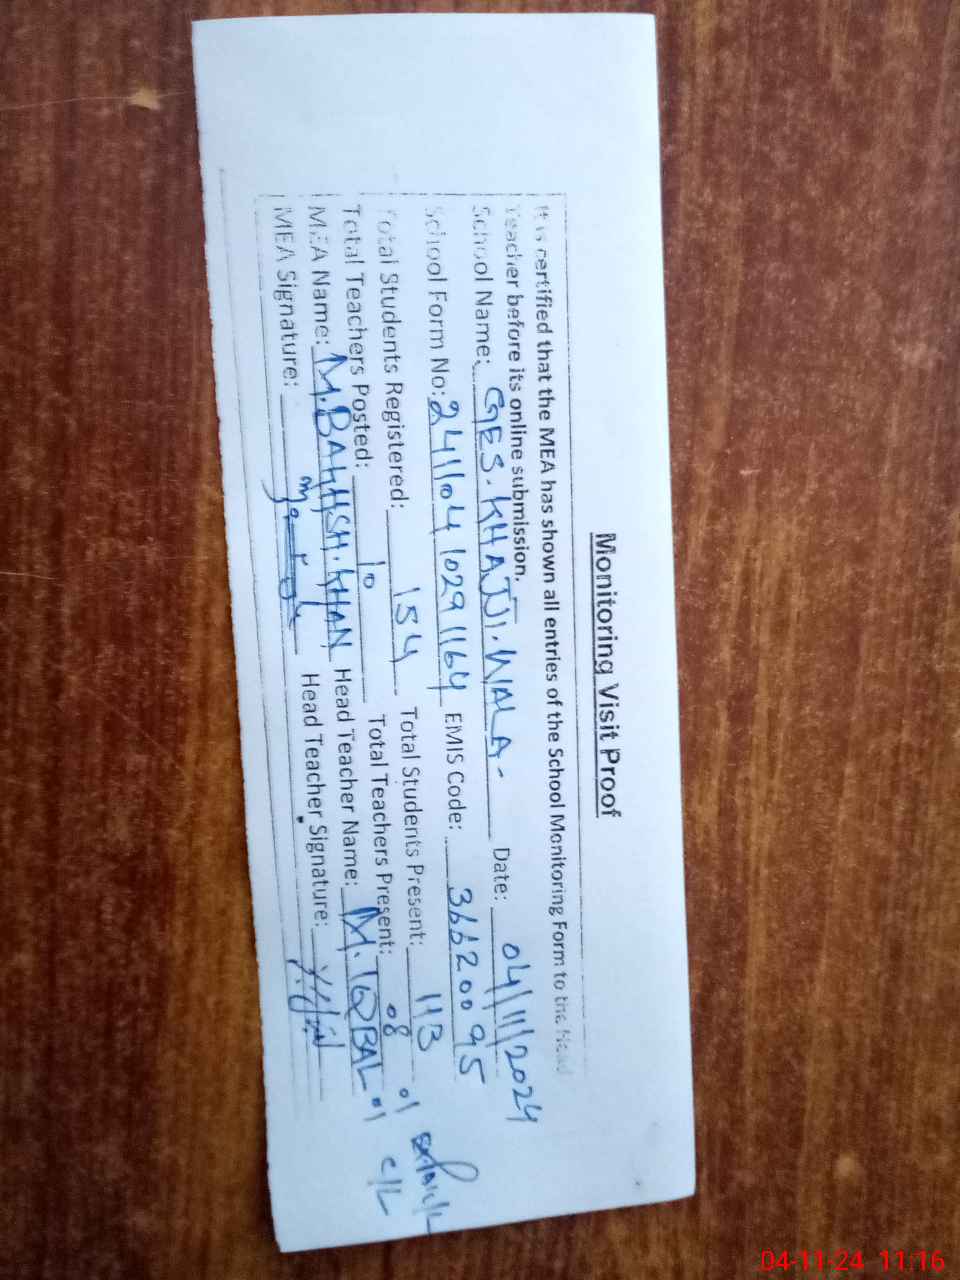 Monitoring Visit Proof
It is certified that the MEA has shown all entries of the School Monitoring Form to the Head
Teacher before its online submission.
School Name: GES. KHAJJI. WALA. Date: 04/11/2024
School Form No: 241104 10291164 EMIS Code: 36620095
Total Students Registered: 154 Total Students Present: 113
Total Teachers Posted: 10 Total Teachers Present: 08 01
MEA Name: M. BAKHSH. KHAN Head Teacher Name: M. IQBAL 01 C/L
MEA Signature: Head Teacher Signature:
04-11-24 11:16